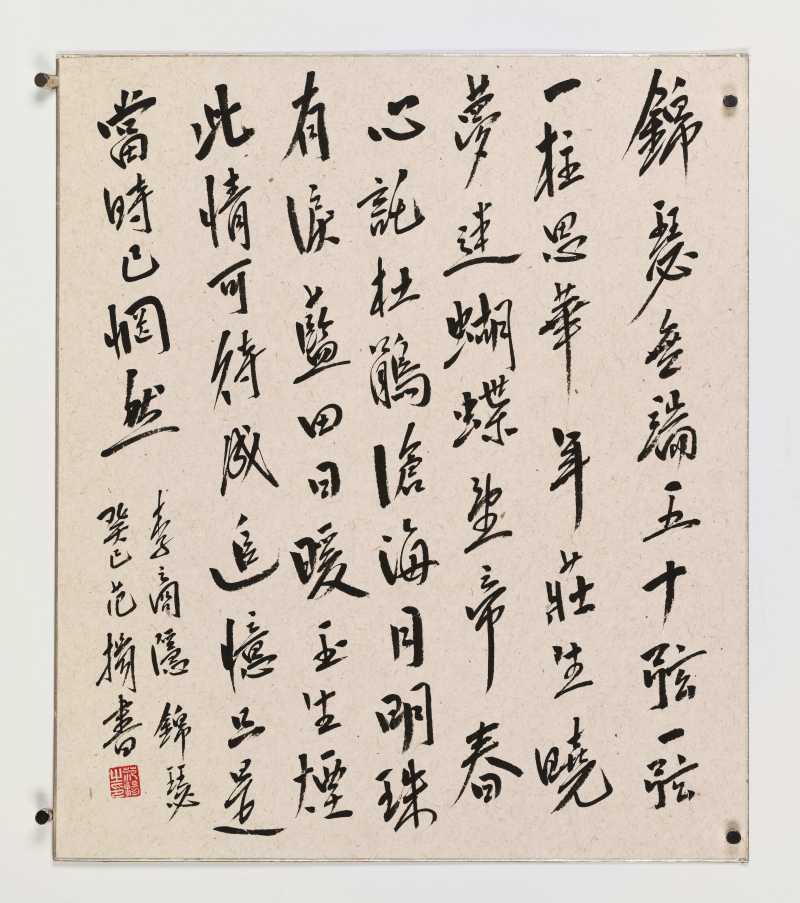 錦瑟無端五十弦一弦
一柱思華年莊生曉
夢迷蝴蝶望帝春
心託杜鵑滄海月明珠
有淚藍田日暖玉生煙
此情可待成追憶只是
當時已惘然
李商隱 錦瑟
癸巳范揚書